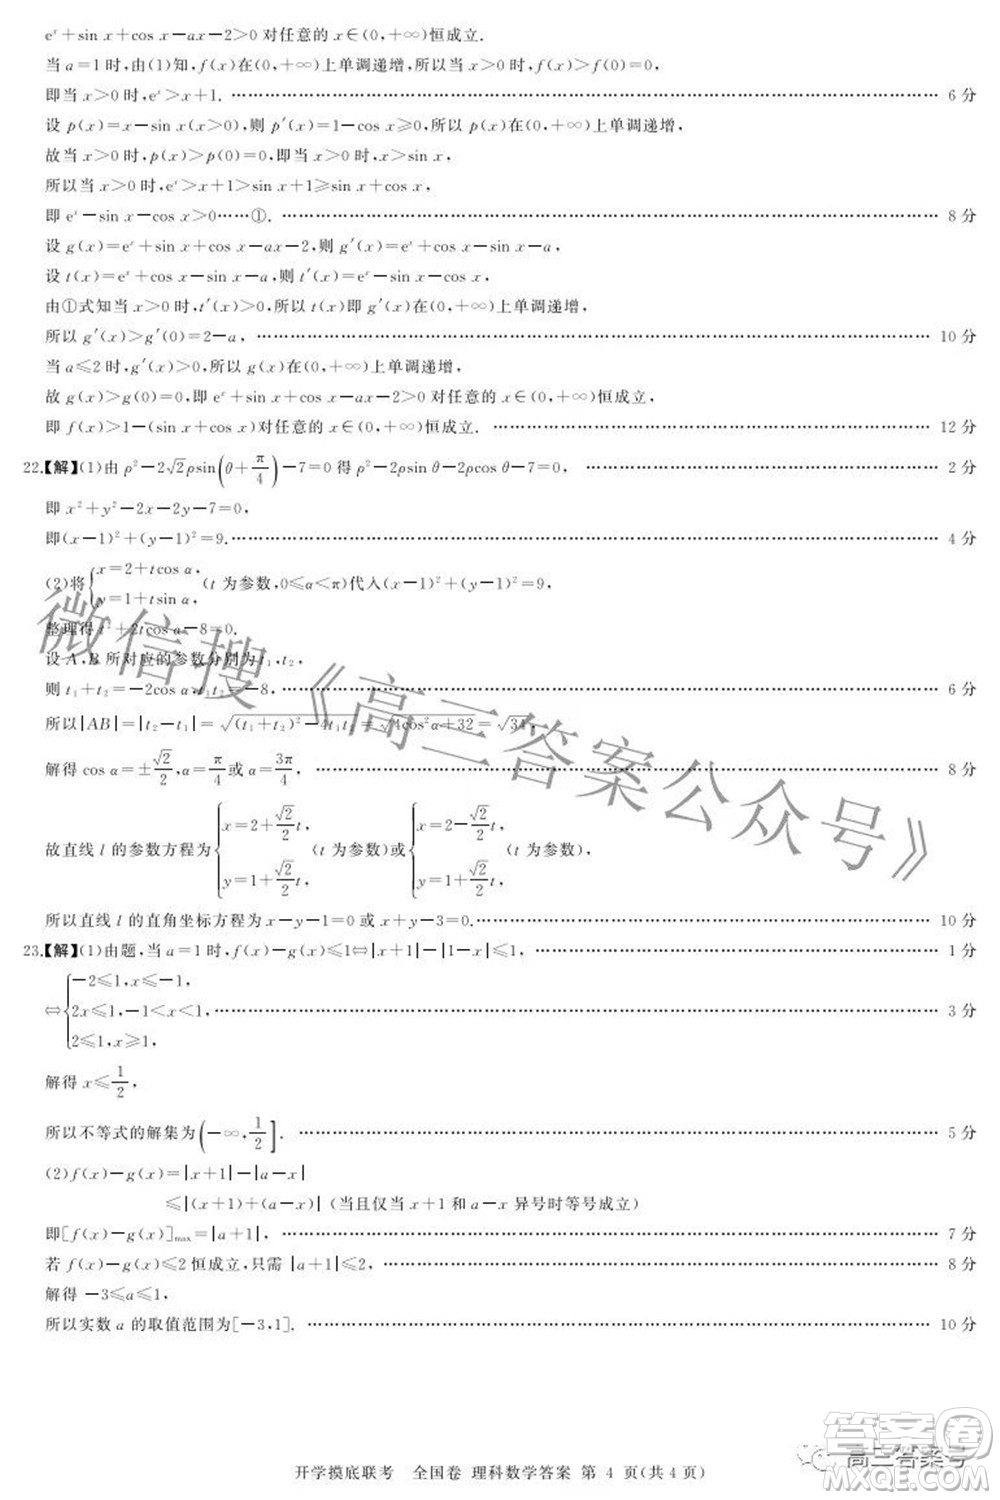 eˣ+sin x+cos x-ax-2>0 对任意的 x∈(0,+∞)恒成立.
当 a=1 时,由(1)知,f(x)在(0,+∞)上单调递增,所以当 x>0 时,f(x)>f(0)=0,
即当 x>0 时,eˣ>x+1. …… 6 分
设 p(x)=x-sin x(x>0),则 p′(x)=1-cos x≥0,所以 p(x)在(0,+∞)上单调递增,
故当 x>0 时,p(x)>p(0)=0,即当 x>0 时,x>sin x,
所以当 x>0 时,eˣ>x+1>sin x+1≥sin x+cos x,
即 eˣ-sin x-cos x>0……①. …… 8 分
设 g(x)=eˣ+sin x+cos x-ax-2,则 g′(x)=eˣ+cos x-sin x-a,
设 t(x)=eˣ+cos x-sin x-a,则 t′(x)=eˣ-sin x-cos x,
由①式知当 x>0 时,t′(x)>0,所以 t(x)即 g′(x)在(0,+∞)上单调递增,
所以 g′(x)>g′(0)=2-a, …… 10 分
当 a≤2 时,g′(x)>0,即 g(x)在(0,+∞)上单调递增,
故 g(x)>g(0)=0,即 eˣ+sin x+cos x-ax-2>0 对任意的 x∈(0,+∞)恒成立,
即 f(x)>1-(sin x+cos x)对任意的 x∈(0,+∞)恒成立. …… 12 分
22.【解】(1)由 ρ²-2√2ρsin(θ+π/4)-7=0 得 ρ²-2ρsin θ-2ρcos θ-7=0, …… 2 分
即 x²+y²-2x-2y-7=0,
即(x-1)²+(y-1)²=9. …… 4 分
(2)将{x=2+tcos α, y=1+tsin α,(t 为参数,0≤α<π)代入(x-1)²+(y-1)²=9,
整理得 t²+2tcos α-8=0.
设 A,B 所对应的参数分别为 t₁,t₂,
则 t₁+t₂=-2cos α,t₁t₂=-8, …… 6 分
所以|AB|=|t₂-t₁|=√((t₁+t₂)²-4t₁t₂)=√(4cos²α+32)=√34,
解得 cos α=±√2/2,α=π/4或 α=3π/4, …… 8 分
故直线 l 的参数方程为{x=2+√2/2 t, y=1+√2/2 t,(t 为参数)或{x=2-√2/2 t, y=1+√2/2 t,(t 为参数),
所以直线 l 的直角坐标方程为 x-y-1=0 或 x+y-3=0. …… 10 分
23.【解】(1)由题,当 a=1 时,f(x)-g(x)≤1⇔|x+1|-|1-x|≤1, …… 1 分
⇔{-2≤1,x≤-1, 2x≤1,-1<x<1, 2≤1,x≥1, …… 3 分
解得 x≤1/2,
所以不等式的解集为(-∞,1/2]. …… 5 分
(2)f(x)-g(x)=|x+1|-|a-x|
≤|(x+1)+(a-x)|(当且仅当 x+1 和 a-x 异号时等号成立)
即[f(x)-g(x)]max=|a+1|, …… 7 分
若 f(x)-g(x)≤2 恒成立,只需 |a+1|≤2, …… 8 分
解得 -3≤a≤1,
所以实数 a 的取值范围为[-3,1]. …… 10 分
开学摸底联考 全国卷 理科数学答案 第 4 页(共 4 页)
微信搜《高三答案公众号》
高三答案号
答案圈
MXQE.COM